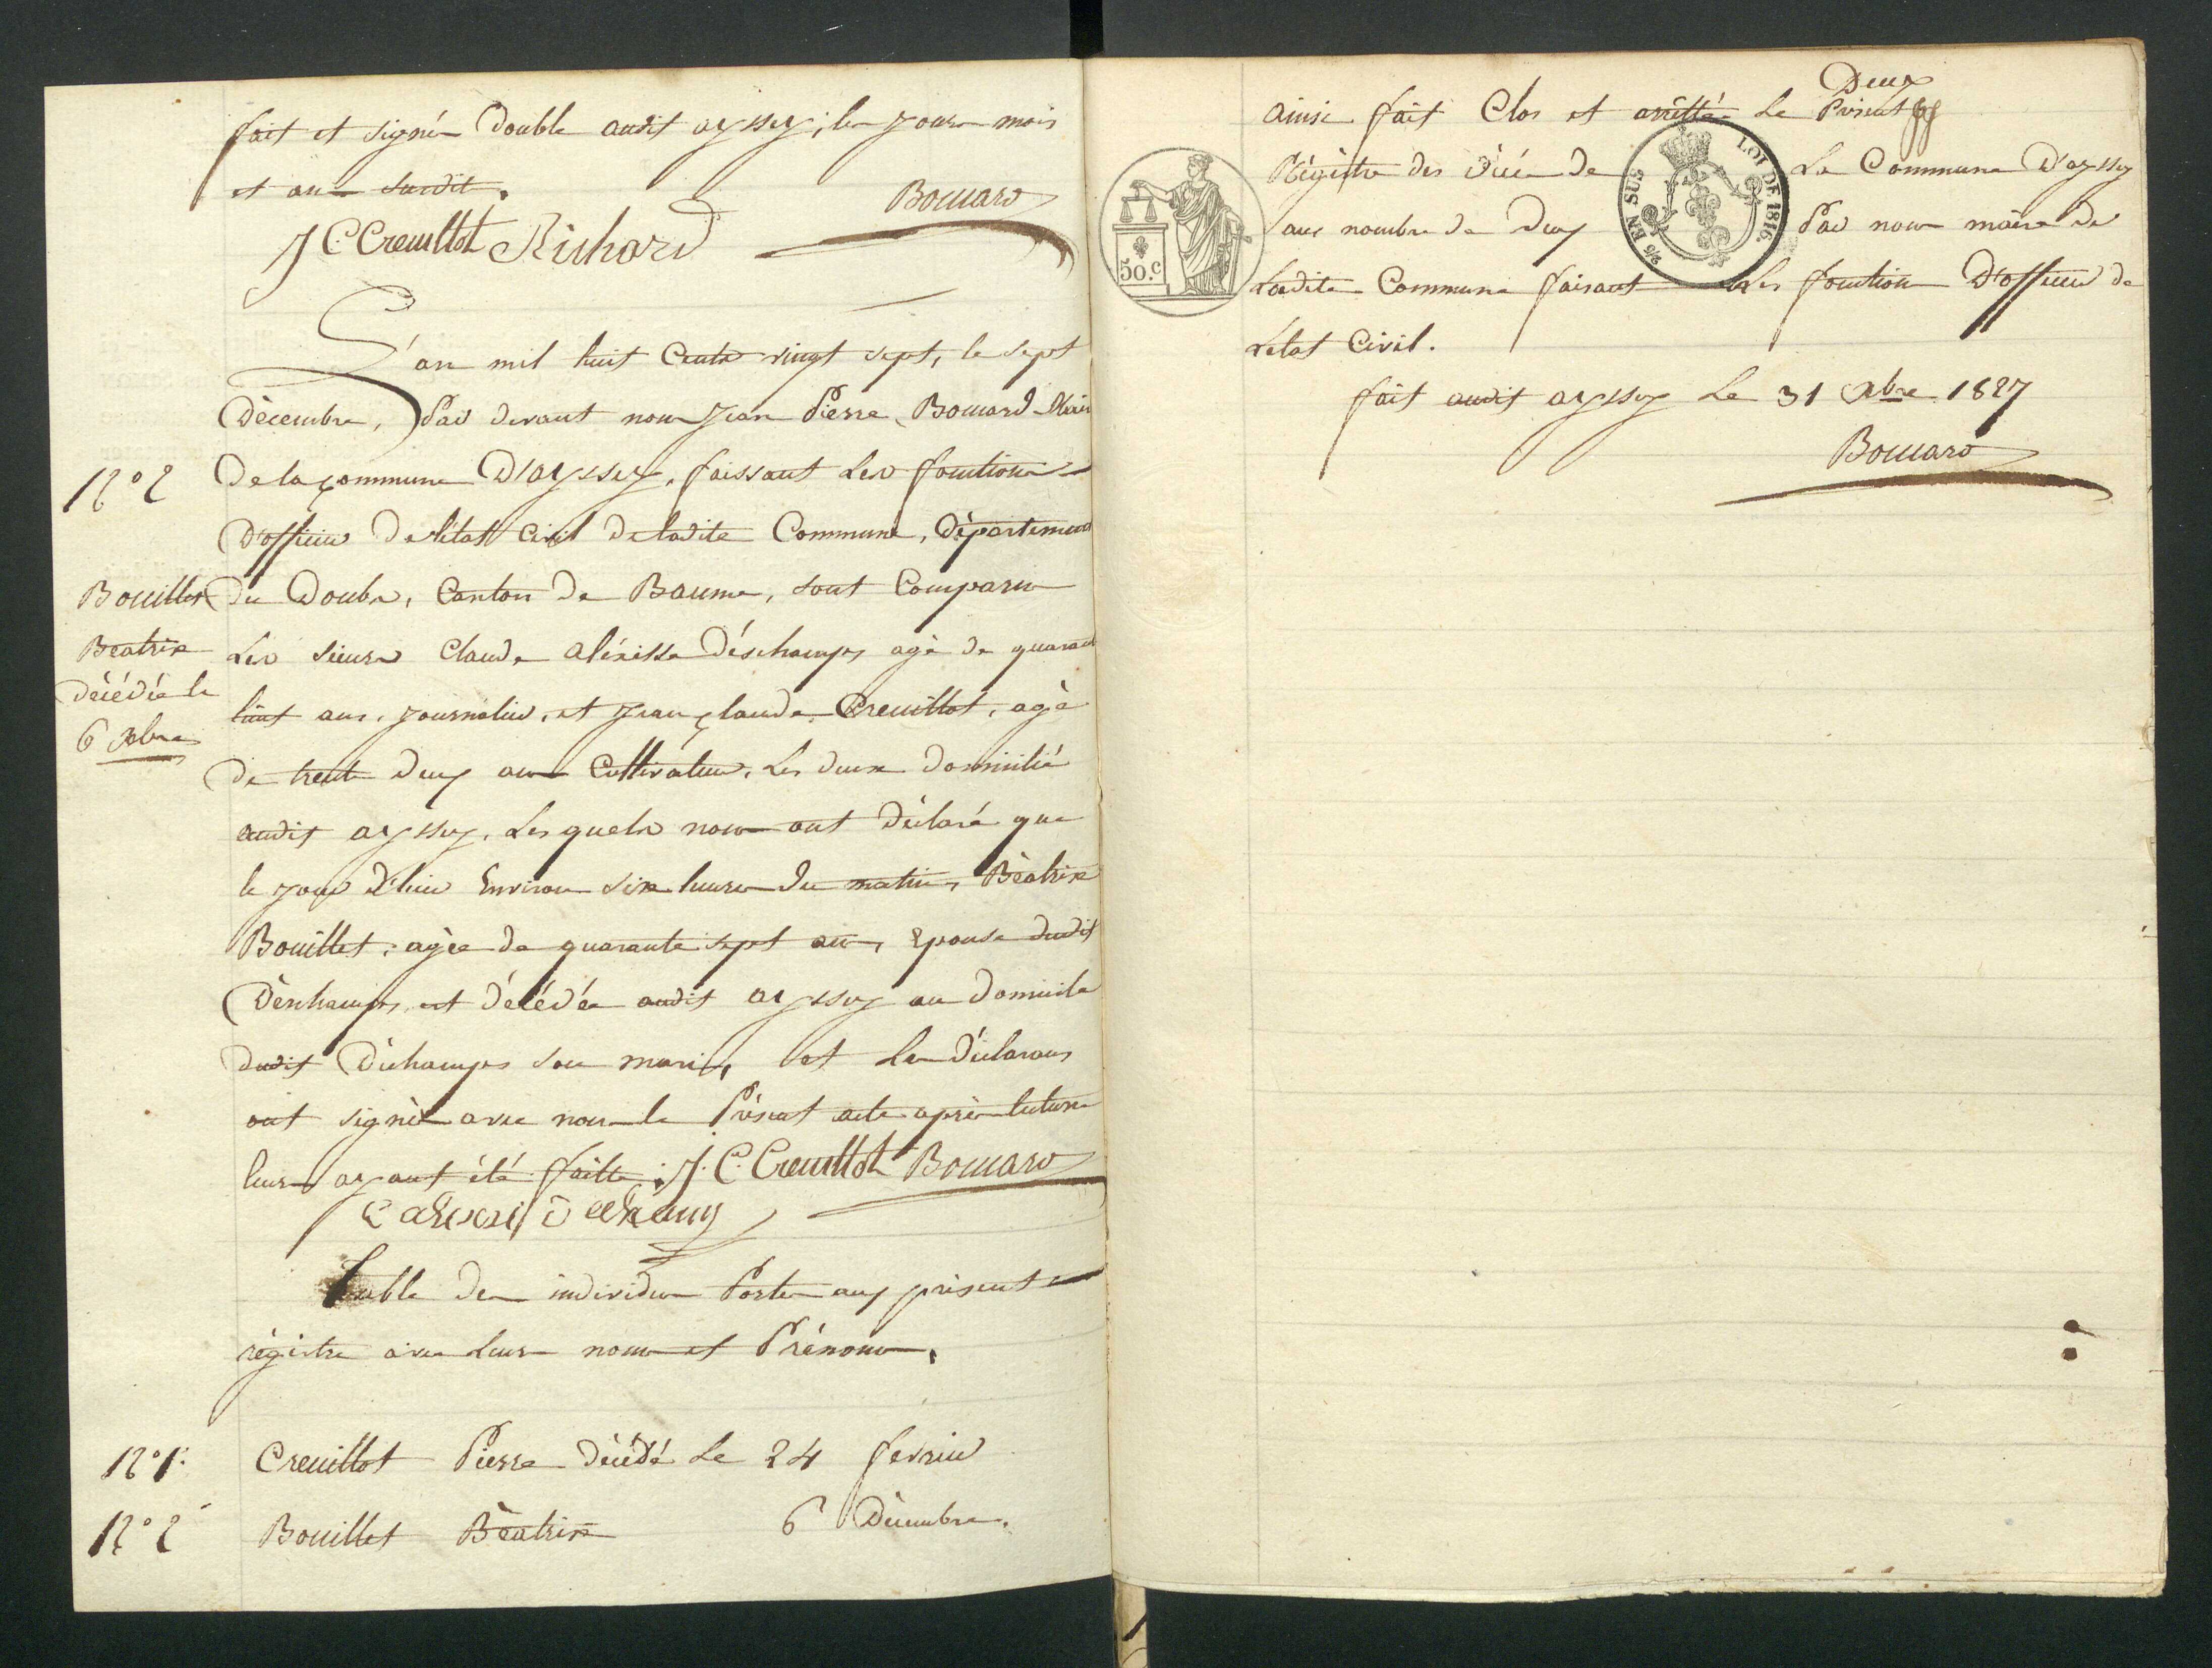 fait et signé double audit ayssey, les jour mois
et an susdit.
J C Creuillot Richard Bouard
L'an mil huit cents vingt sept, le sept
Décembre, Pard devant nous Jean Pierre Bouard Maire
N° 2
De la commune D'ayssey, faissant les fonctions
D'officier De l'état Civil De ladite Commune, Département
Bouillet
Du Doubs, Canton De Baume, sont Comparus
Béatrix
Les sieurs Claude aléxisse Déschamps agé de quarante
décédée le
6 Xbre
huit ans, journalier, et Jean Claude Creuillot, agé
de trente deux ans Cultivateur, Les deux domicilié
audit ayssey, Les quels nous ont déclaré que
le jour d'hier Environ six heures du matin, Béatrix
Bouillet, agée de quarante sept ans, Epouse dudit
Déschamps, est décédée audit ayssey au domicile
dudit Déchamps son mari, et les déclarans
ont signé avec nous le Présent acte après lecture
leurs ayant été faitte. J. C. Creuillot Bouard
Table des individus Portes aux présent
régistre avec leurs noms et Prénoms.
N° 1. Creuillot Pierre décédé Le 24 fevrier
N° 2 Bouillet Béatrix 6 Décembre.
Deux
ainsi fait Clos et arrêtté Le Présent
Régistre des décés de La Commune D'ayssey
aus nombre de Deux Par nous maire de
Ladite Commune faisant Les fonction D'officier de
L'état Civil.
fait audit ayssey Le 31 Xbre 1827
Bouard
50.C
EN SUS
LOI DE 1816.